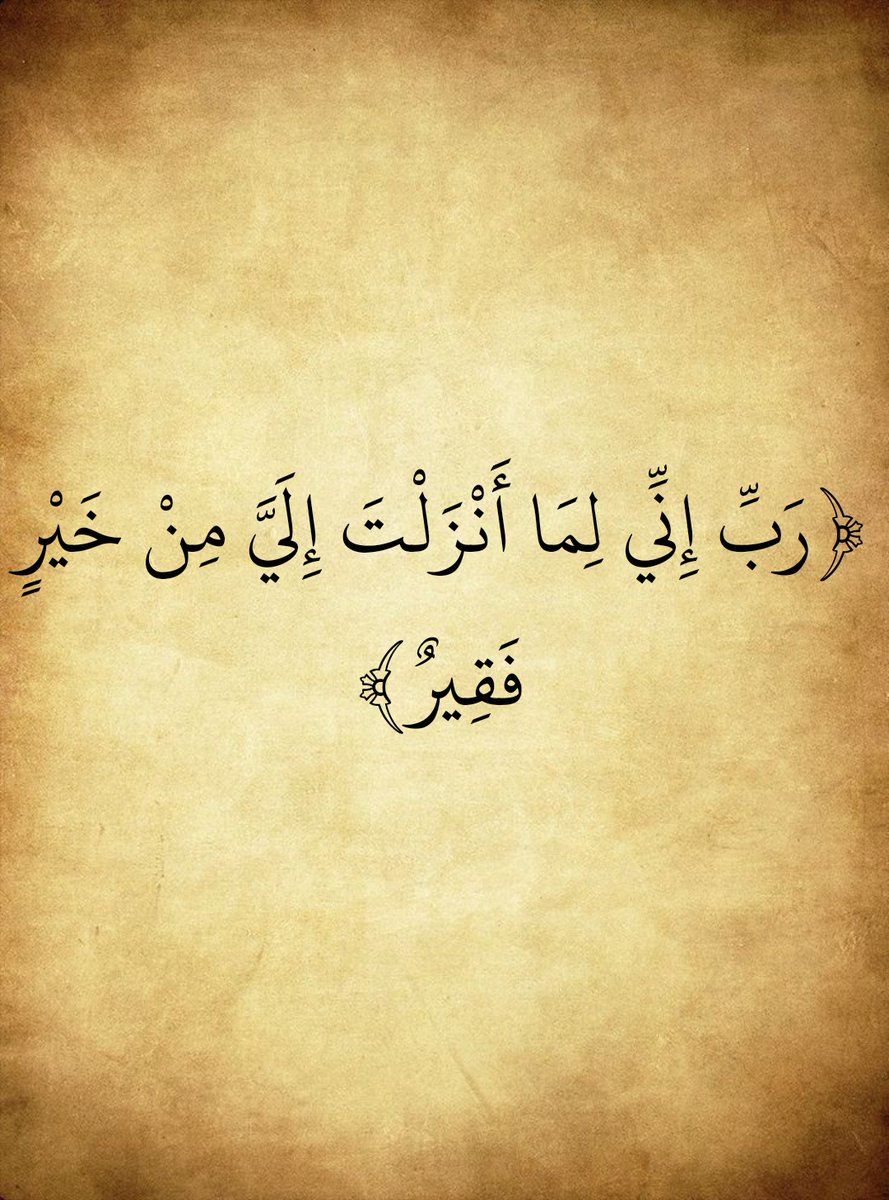 ﴿رَبِّ إِنِّي لِمَا أَنْزَلْتَ إِلَيَّ مِنْ خَيْرٍ
فَقِيرٌ﴾